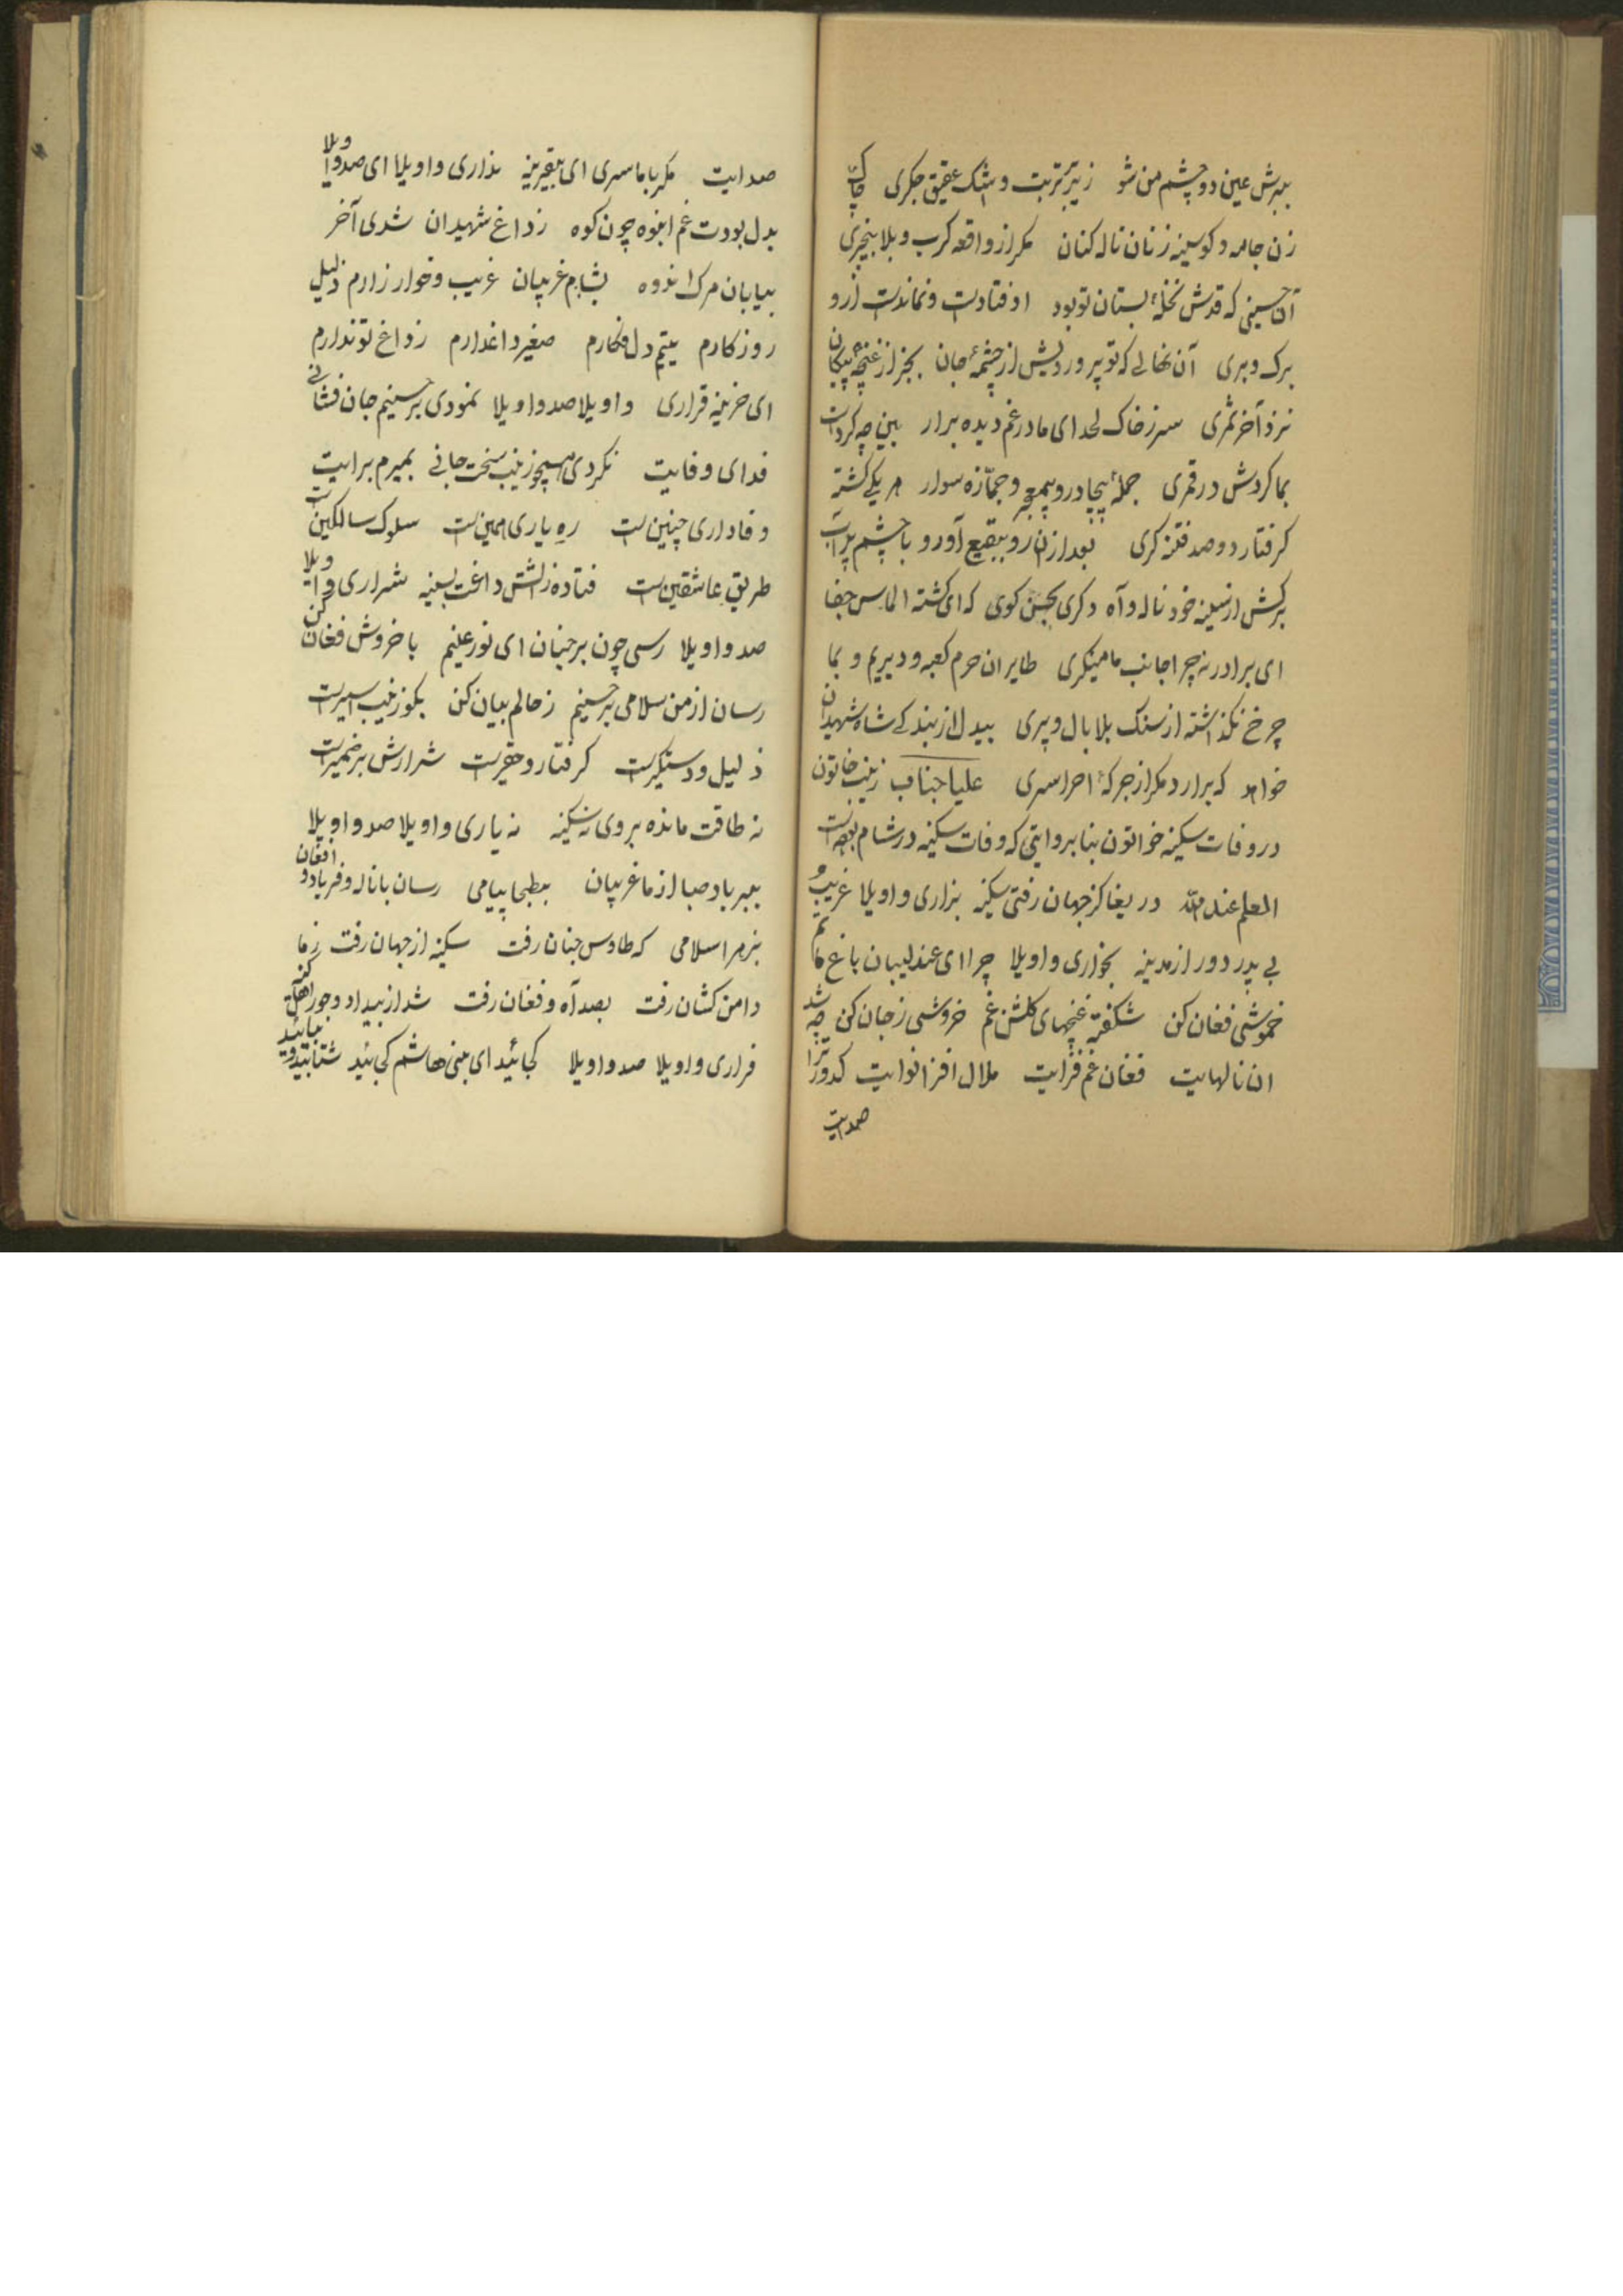 ببرش عین دو چشم من شو زیر تربت و شک عقیق جکری چاک
زن جامه و کو سینه زنان ناله کنان مکر از واقعه کرب و بلا بیخبری
آن حسینی که قدش نخلهٔ بستان تو بود اوفتادست و نماندست ازو
برک و بری آن نهالی که تو پروردیش از چشمهٔ جان بجز از غنچهٔ پیکان
نزد آخر ثمری سر ز خاک لحد ای مادر غم دیده برار ببین چه کردست
بما کردش دور قمری جملهٔ بیچادر و بیمعجر و جمّازه سوار هر یکی کشته
کرفتار دو صد فتنه کری بعد ازان رو ببقیع آورد و با چشم پر آب
برکش از سینه خود ناله و آه دکری بحسن کوی که ای کشته الماس جفا
ای برادر نه چرا جانب ما مینکری طایران حرم کعبه و دیریم و بما
چرخ نکذاشته از سنک بلا بال و پری بیدل از بندکی شاه شهیدان
خواهد که برارد مکر از جرکهٔ احرا سری علیا جناب زینب خاتون
در وفات سکینه خواتون بنا بروایتی که وفات سکینه در شام بوده است
العلم عند الله دریغا کز جهان رفتی سکینه بزاری و اویلا غریب و
بی پدر دور از مدینه بخواری و اویلا چرا ای عندلیبان باغ ماتم
خموشی فغان کن شکفته غنچهای کلشن غم خروشی ز جان کن چه شد
ان نالهایت فغان غم فزایت ملال افزا نوایت کدورت زا
صدایت
صدایت مکر با ما سری ای بیقرینه نداری و اویلا ای صد واویلا
بدل بودت غم انبوه چون کوه ز داغ شهیدان شدی آخر
بیابان مرک اندوه بشام غریبان غریب و خوار زارم ذلیل
روزکارم یتیم دل فکارم صغیر داغدارم ز داغ تو ندارم
ای خزینه قراری و اویلا صد و اویلا نمودی بر حسینم جان فشانی
فدای وفایت نکردی هیچو زینب سخت جانی بمیرم برایت
وفاداری چنین است ره یاری همین است سلوک سالکین است
طریق عاشقین است فتاده ز اتش داغت بسینه شراری واویلا
صد و اویلا رسی چون بر جنان ای نور عینم با خروش فغان کن
رسان از من سلامی بر حسینم ز حالم بیان کن بکو زینب اسیرست
ذلیل و دستکیرست کرفتار و حقیرست شرارش بر ضمیرست
نه طاقت مانده بر وی نه سکینه نه یاری و اویلا صد و اویلا
ببر باد صبا از ما غریبان ببطحا پیامی رسان با ناله و فریاد و افغان
بزهرا سلامی که طاوس جنان رفت سکینه از جهان رفت ز ما
دامن کشان رفت بصد آه و فغان رفت شد از بیداد و جور اهل کینه
فراری و اویلا صد و اویلا کجائید ای بنی هاشم کجائید شتابید و بیائید